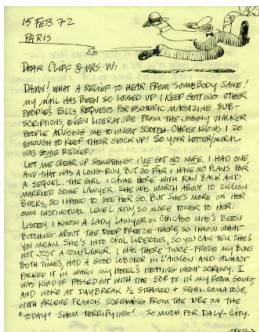 15 FEB 72
PARIS
DEAR CLIFF & MRS. W:
DAMN! WHAT A RELIEF TO HEAR FROM SOMEBODY SANE!
MY MAIL HAS BEEN SO LOUSED UP I KEEP GETTING OTHER
PEOPLE'S BILLS, REQUESTS FOR ESOTERIC MAGAZINE SUB-
SCRIPTIONS, EVEN LITERATURE FROM THE JOHNNY WALKER
PEOPLE ADVISING ME TO INVEST SCOTCH. CHRIST KNOWS I DO
ENOUGH TO KEEP THEIR STOCK UP! SO YOUR LETTER/MURAL
WAS SOME RELIEF!
LET ME CLEAR UP SOMETHING: I'VE GOT NO WIFE. I HAD ONE,
AND THAT WAS A LONG-RUN, BUT SO FAR I HAVE NO PLANS FOR
A SEQUEL. THE GIRL I CAME HERE WITH RAN BACK AND
MARRIED SOME LAWYER. SHE WAS WORTH ABOUT 10 ZILLION
BUCKS, SO I HATED TO SEE HER GO. BUT SHE'S MORE ON HER
OWN INSTINCTUAL LEVEL NOW SO MORE POWER TO HER.
LISTEN, I KNOW A LADY LAWYER IN CHICAGO WHO'S BEEN
BITCHING ABOUT THE DEEP FREEZE THERE, SO I KNOW WHAT
YOU MEAN. SHE'S INTO CIVIL LIBERTIES, SO YOU CAN TELL SHE'S
NOT JUST A COMPLAINER. I WAS THERE TWICE - FROZE MY BUNS
BOTH TIMES, HAD A GOOD LOBSTER IN
PACKED IT IN WHEN MY HOTEL'S HEATING WENT SCREWY. I
WAS KIND OF PISSED OUT WITH THE
AND THERE AT DAYBREAK 1/2 STEWED & SEMI-COMATOSE
WITH ARLENE FRANCIS SCREAMING FROM THE TUBE ON THE
"TODAY" SHOW. TERRIFYING! SO MUCH FOR DALY-CITY.